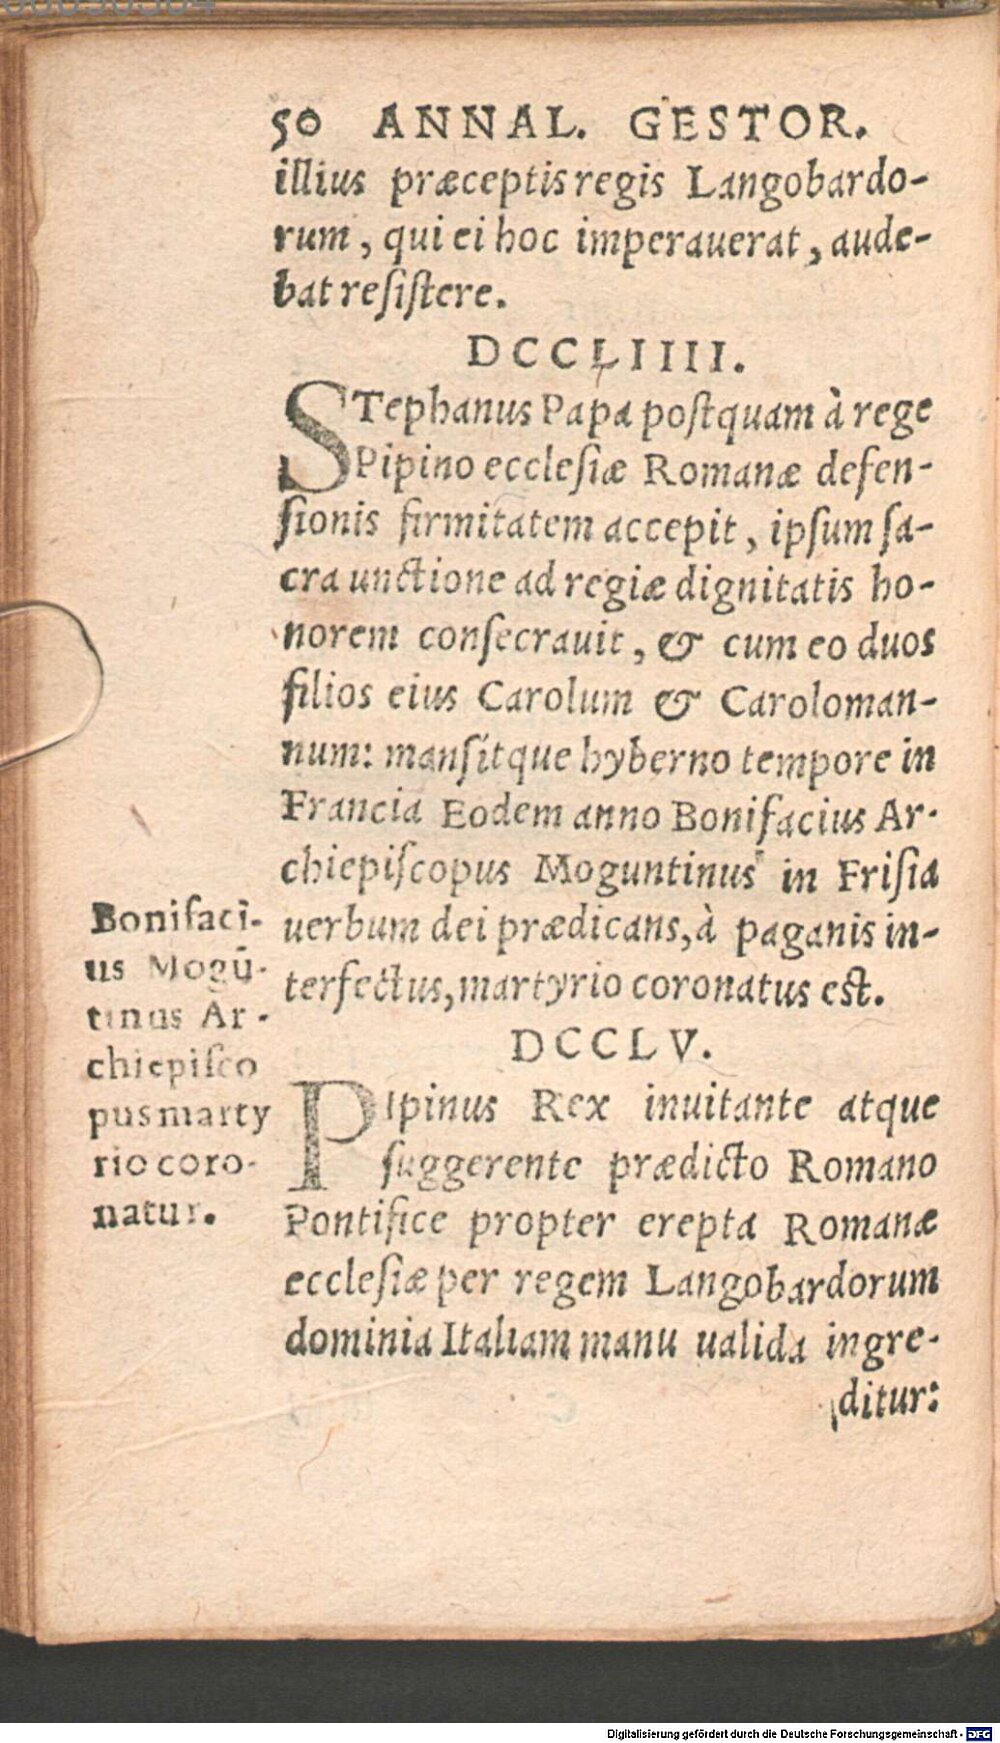 50 ANNAL. GESTOR.
illius præceptis regis Langobardo-
rum, qui ei hoc imperauerat, aude-
bat resistere.
DCCLIIII.
STephanus Papa postquam à rege
Pipino ecclesiæ Romanæ defen-
sionis firmitatem accepit, ipsum sa-
cra unctione ad regiæ dignitatis ho-
norem consecrauit, & cum eo duos
filios eius Carolum & Caroloman-
num: mansitque hyberno tempore in
Francia Eodem anno Bonifacius Ar-
chiepiscopus Moguntinus in Frisia
uerbum dei prædicans, à paganis in-
terfectus, martyrio coronatus est.
Bonifaci-
us Mogū-
tinus Ar-
chiepisco
pus marty
rio coro-
natur.
DCCLV.
PIpinus Rex inuitante atque
suggerente prædicto Romano
Pontifice propter erepta Romanæ
ecclesiæ per regem Langobardorum
dominia Italiam manu ualida ingre-
ditur:
Digitalisierung gefördert durch die Deutsche Forschungsgemeinschaft - DFG